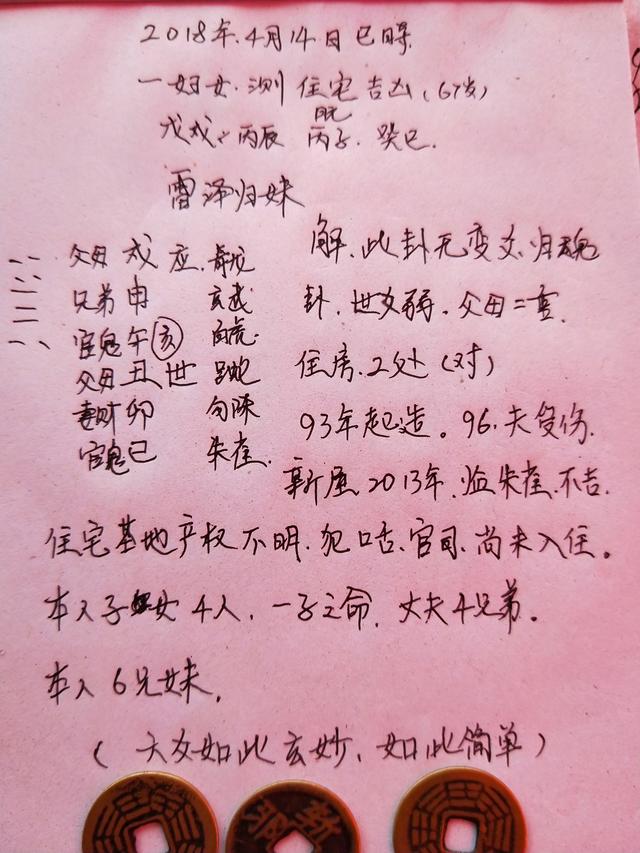 2018年.4月14日巳时
一妇女.测住宅吉凶(67岁)
戊戌.丙辰 丙子.癸巳.
雷泽归妹
父母 戌 应.青龙
兄弟 申 玄武
官鬼 午 亥 白虎
父母 丑 世 螣蛇
妻财 卯 勾陈
官鬼 巳 朱雀.
解.此卦无变爻.归魂
卦.世爻弱.父母二重
住房.2处(对)
93年起造。96.夫受伤.
新屋.2013年.临朱雀.不吉.
住宅基地产权不明.犯口舌.官司.尚未入住。
本人子女4人,一子之命,丈夫4兄弟。
本人6兄妹.
(六爻如此玄妙、如此简单)